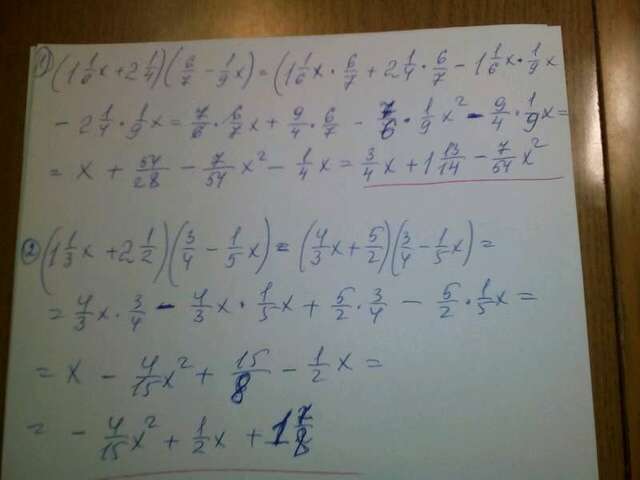 1) (1 1/6 x + 2 1/4)(6/7 - 1/9 x) = (1 1/6 x · 6/7 + 2 1/4 · 6/7 - 1 1/6 x · 1/9 x
- 2 1/4 · 1/9 x = 7/6 · 6/7 x + 9/4 · 6/7 - 7/6 · 1/9 x² - 9/4 · 1/9 x =
= x + 54/28 - 7/54 x² - 1/4 x = 3/4 x + 1 13/14 - 7/54 x²
2) (1 1/3 x + 2 1/2)(3/4 - 1/5 x) = (4/3 x + 5/2)(3/4 - 1/5 x) =
= 4/3 x · 3/4 - 4/3 x · 1/5 x + 5/2 · 3/4 - 5/2 · 1/5 x =
= x - 4/15 x² + 15/8 - 1/2 x =
= - 4/15 x² + 1/2 x + 1 7/8